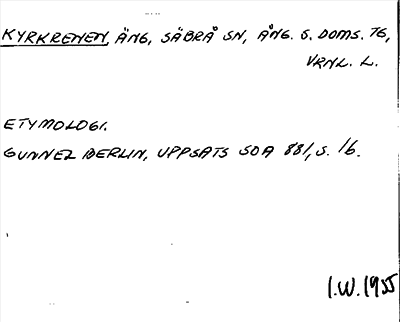 KYRKRENEN, ÄNG, SÄBRÅ SN, ÅNG. S. DOMS. 76,
VRNL. L.
ETYMOLOGI.
GUNNEL BERLIN, UPPSATS SOA 881, S. 16.
I.W. 1955